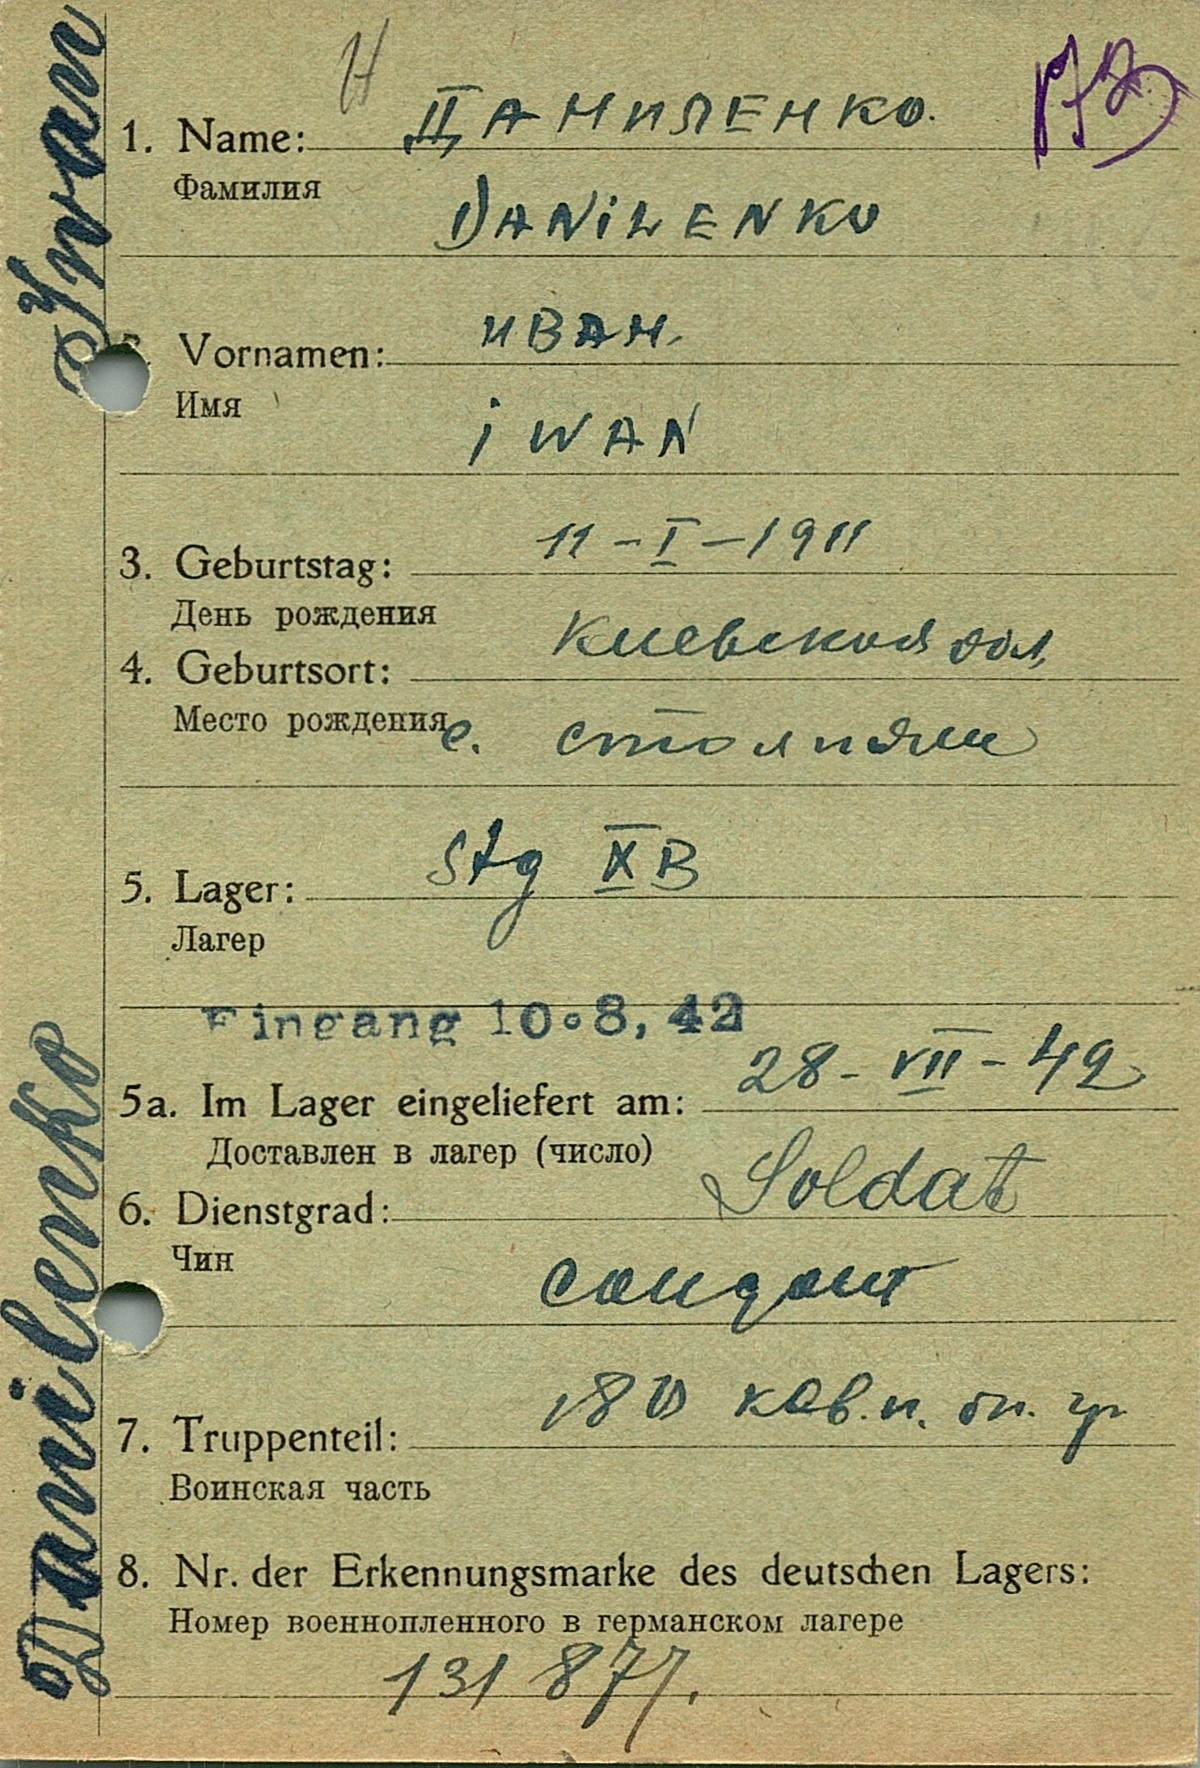 Danilenko Iwan
1. Name: ДАНИЛЕНКО.
Фамилия
DANiLENKO
Vornamen: ИВАН.
Имя
iWAN
3. Geburtstag: 11-I-1911
День рождения
4. Geburtsort: Киевской обл,
Место рождения с. столпяги
5. Lager: Stg XB
Лагер
Eingang 10.8,42
5a. Im Lager eingeliefert am: 28-VII-42
Доставлен в лагер (число)
6. Dienstgrad: Soldat
Чин
солдат
7. Truppenteil: 180 кав.п.
Воинская часть
8. Nr. der Erkennungsmarke des deutschen Lagers:
Номер военнопленного в германском лагере
131 877.